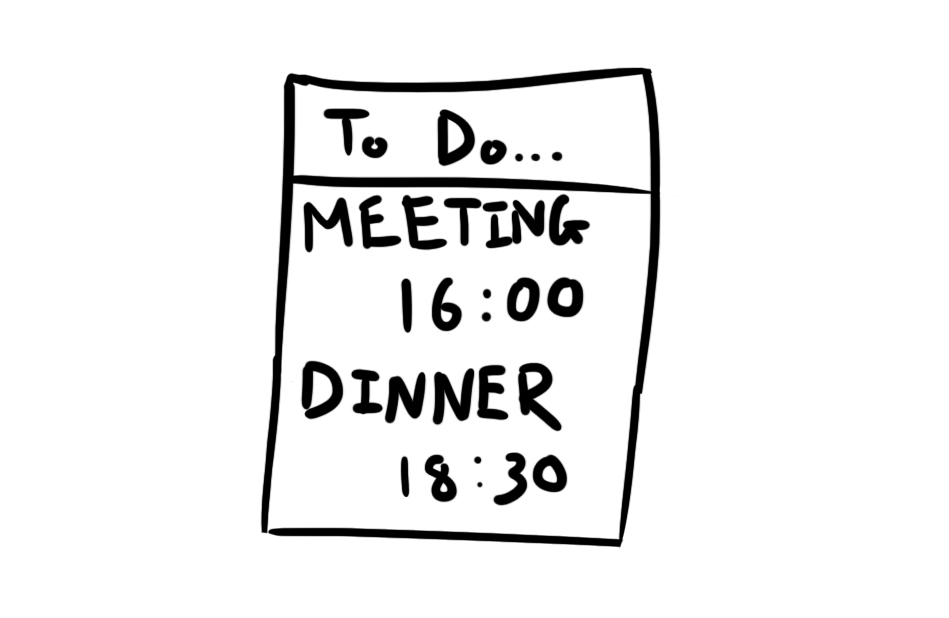 To Do...
MEETING
16:00
DINNER
18:30